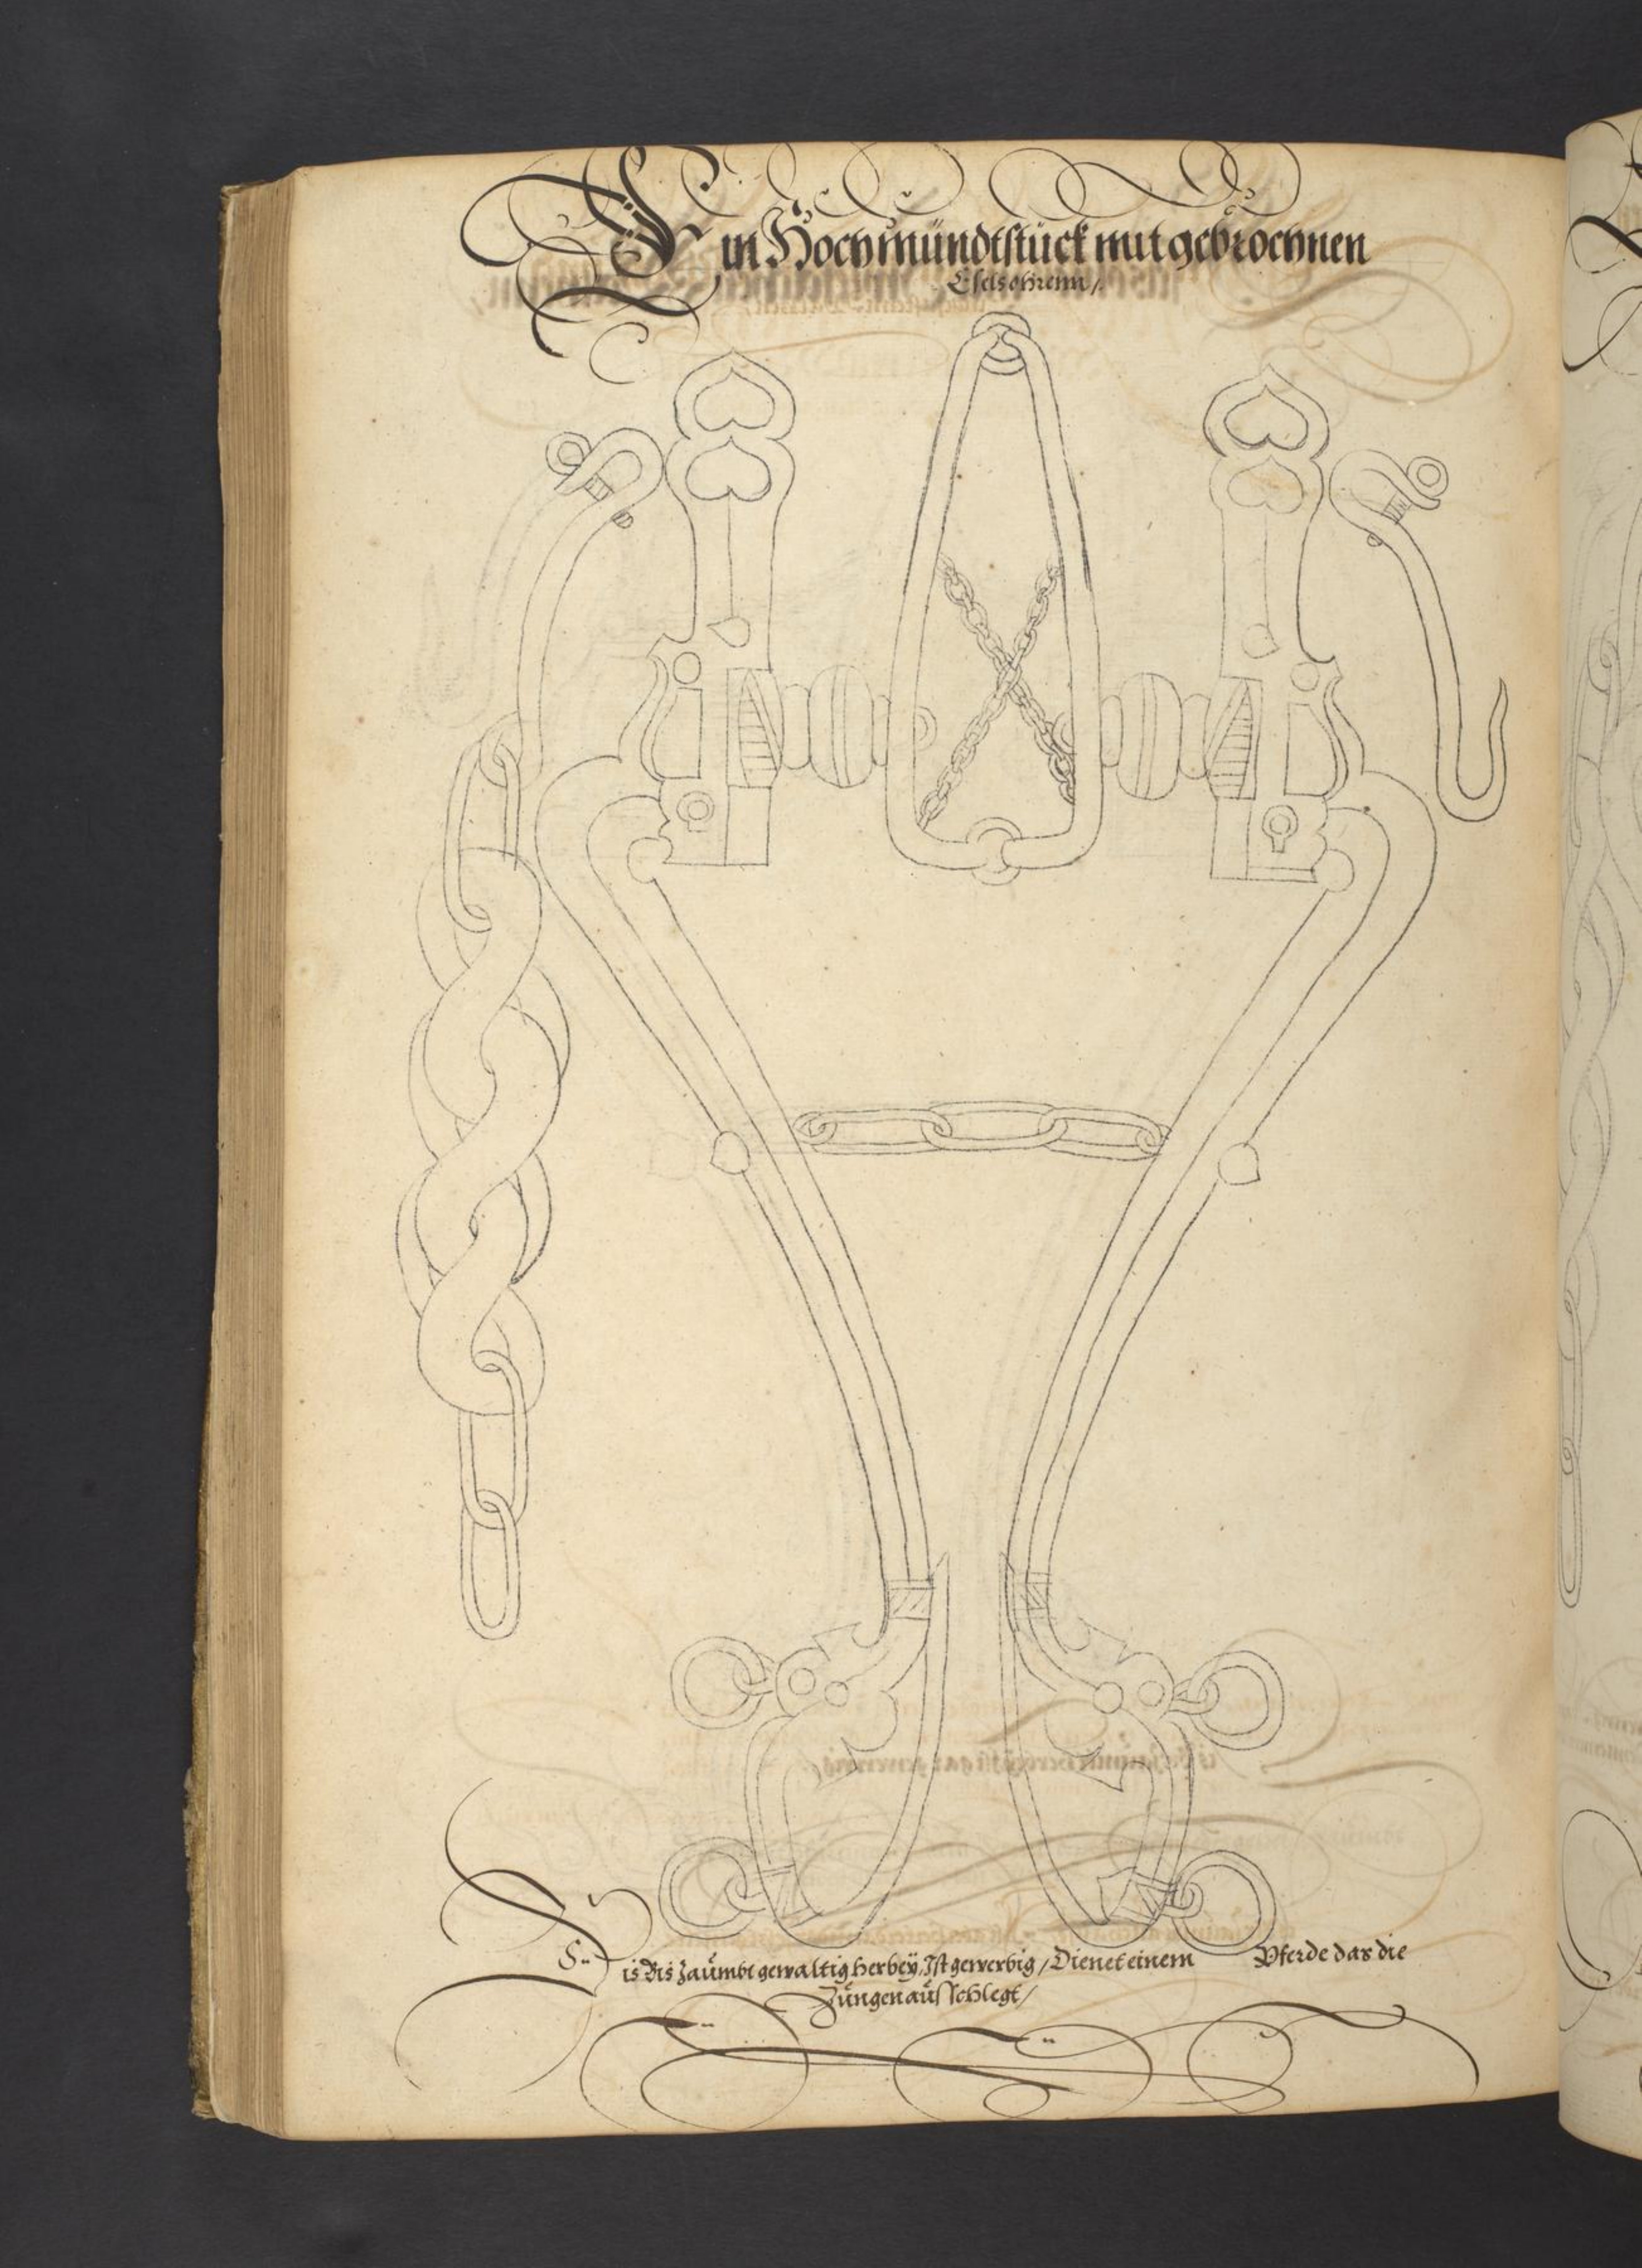 Ein Hoch mündtstück mit gebrochnen
Eselsohrenn /
Dis Bis Zaümbt gewaltig herbeÿ, Ist gewerbig / Dienet einem Pferde das die
Züngen aüsschlegt /